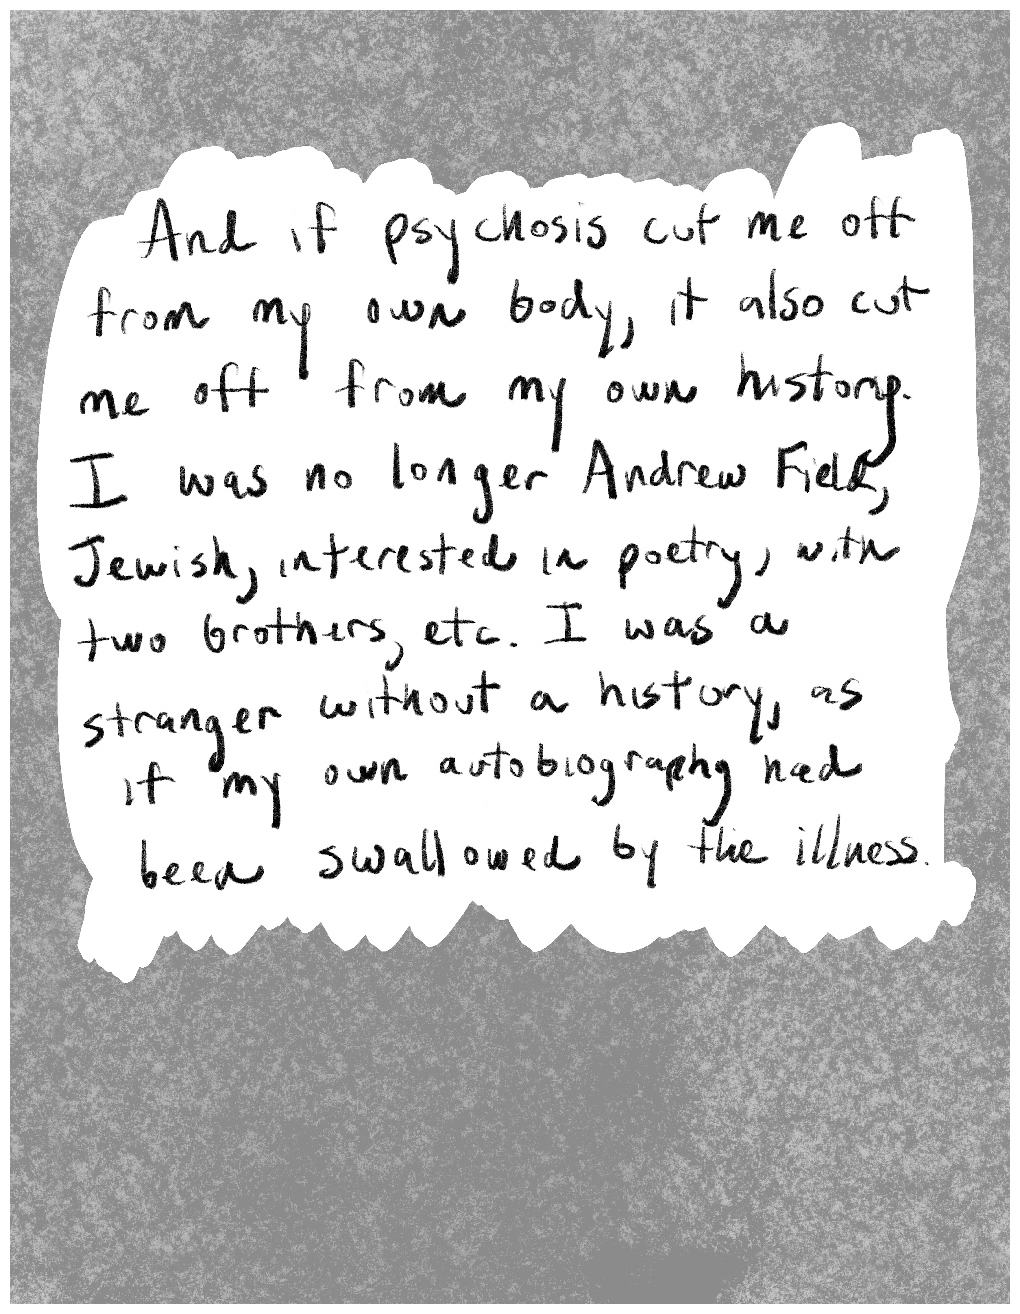 And if psychosis cut me off
from my own body, it also cut
me off from my own history.
I was no longer Andrew Field,
Jewish, interested in poetry, with
two brothers, etc. I was a
stranger without a history, as
if my own autobiography had
been swallowed by the illness.